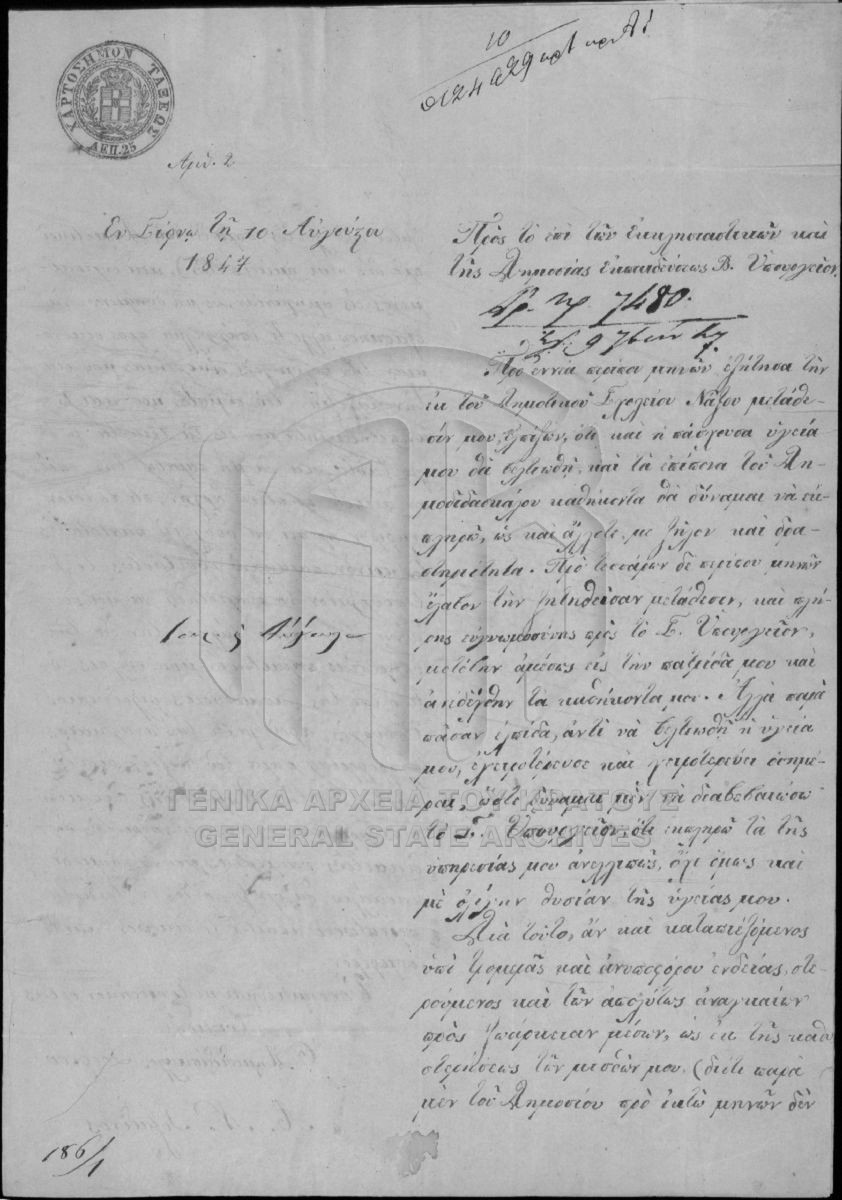 ΧΑΡΤΟΣΗΜΟΝ ΤΑΞΕΩΣ
ΛΕΠ. 25
10
Αριθ. 2
Εν Σίφνῳ τῇ 10 Αὐγούστου
1847
Πρὸς τὸ ἐπὶ τῶν Ἐκκλησιαστικῶν καὶ
τῆς Δημοσίας Ἐκπαιδεύσεως Β. Ὑπουργεῖον.
7480.
Πρὸ ἐννέα περίπου μηνῶν ἐζήτησα τὴν
ἐκ τοῦ Δημοτικοῦ Σχολείου Νάξου μετάθε-
σίν μου, ἐλπίζων, ὅτι καὶ ἡ πάσχουσα ὑγεία
μου θὰ βελτιωθῇ, καὶ τὰ ἐπίπονα τοῦ Δη-
μοδιδασκάλου καθήκοντα θὰ δύναμαι νὰ ἐκ-
πληρῶ, ὡς καὶ ἄλλοτε, με ζῆλον καὶ δρα-
στηριότητα. Πρὸ τεσσάρων δὲ περίπου μηνῶν
ἔλαβον τὴν ζητηθεῖσαν μετάθεσιν, καὶ πλή-
ρης εὐγνωμοσύνης πρὸς τὸ Σ. Ὑπουργεῖον,
μετέβην ἀμέσως εἰς τὴν πατρίδα μου καὶ
ἀνεδέχθην τὰ καθήκοντα μου. Ἀλλὰ παρὰ
πᾶσαν ἐλπίδα, ἀντὶ νὰ βελτιωθῇ ἡ ὑγεία
μου, ἐχειροτέρευσε καὶ χειροτερεύει ὁσημέ-
ραι, ὥστε δύναμαι μὲν νὰ διαβεβαιώσω
τὸ Σ. Ὑπουργεῖον, ὅτι ἐκπληρῶ τὰ τῆς
ὑπηρεσίας μου ἀνελλιπῶς, ὄχι ὅμως καὶ
μὲ ὀλίγην θυσίαν τῆς ὑγείας μου.
Διὰ τοῦτο, ἂν καὶ καταπιεζόμενος
ὑπὸ τρομερᾶς καὶ ἀνυποφόρου ἐνδείας, στε-
ρούμενος καὶ τῶν ἀπολύτως ἀναγκαίων
πρὸς ζωάρκειαν μέσων, ὡς ἐκ τῆς καθυ-
στερήσεως τῶν μισθῶν μου, (διότι παρὰ
μὲν τοῦ Δημοσίου πρὸ ὀκτὼ μηνῶν δὲν
186/1
ΓΕΝΙΚΑ ΑΡΧΕΙΑ ΤΟΥ ΚΡΑΤΟΥΣ
GENERAL STATE ARCHIVES